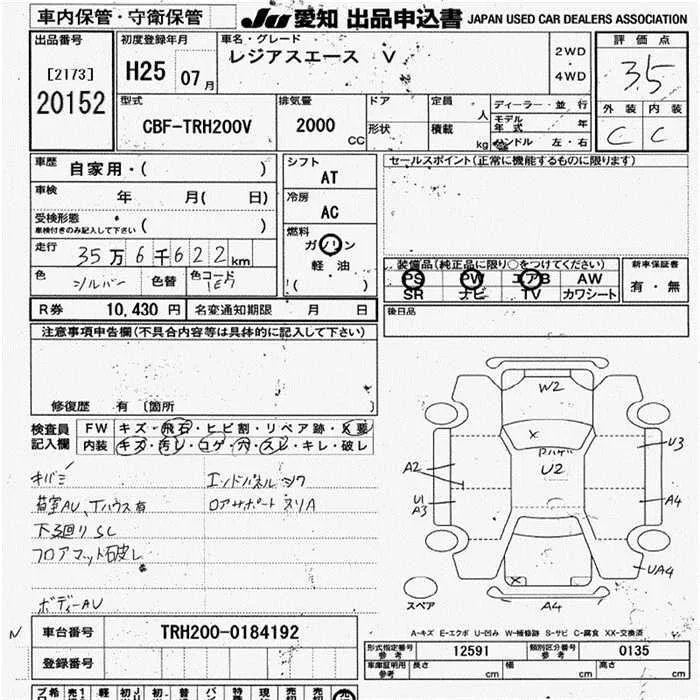 車内保管・守衛保管
JU 愛知 出品申込書 JAPAN USED CAR DEALERS ASSOCIATION
出品番号
[2173]
20152
初度登録年月
H25 07月
車名・グレード
レジアスエース V
2WD
・
4WD
評価点
3.5
外装 内装
C C
型式
CBF-TRH200V
排気量
2000
CC
ドア
形状
定員
人
積載
kg
ディーラー・並行
モデル年式 年
ハンドル 左・右
車歴
自家用・( )
車検
年 月( 日)
受検形態
車検付きのみ記入して下さい
( )
走行
35万6千622km
色
シルバー
色替
色コード
1E7
シフト
AT
冷房
AC
燃料
ガソリン
軽・油
( )
セールスポイント(正常に機能するものに限ります)
装備品(純正品に限り○をつけてください)
PS PW エアB AW
SR ナビ TV カワシート
新車保証書
有・無
後日品
R券 10,430円
名変通知期限 月 日
注意事項申告欄(不具合内容等は具体的に記入して下さい)
修復歴 有〔箇所 〕
検査員
記入欄
FW キズ・飛石・ヒビ割・リペア跡・X要
内装 キズ・汚レ・コゲ・穴・スレ・キレ・破レ
キバミ
エンドパネル シワ
荷室AU、
ロアサポート ヌリA
下廻り SC
フロアマット
ボディーAU
W2
X
U2
U3
A2
U1
A3
A4
UA4
X
A4
スペア
A-キズ E-エクボ U-凹み W-補修跡 S-サビ C-腐食 XX-交換済
N
車台番号
TRH200-0184192
登録番号
形式指定番号
参考
12591
類別区分番号
参考
0135
車庫証明用
参考
長さ cm
幅 cm
高さ cm